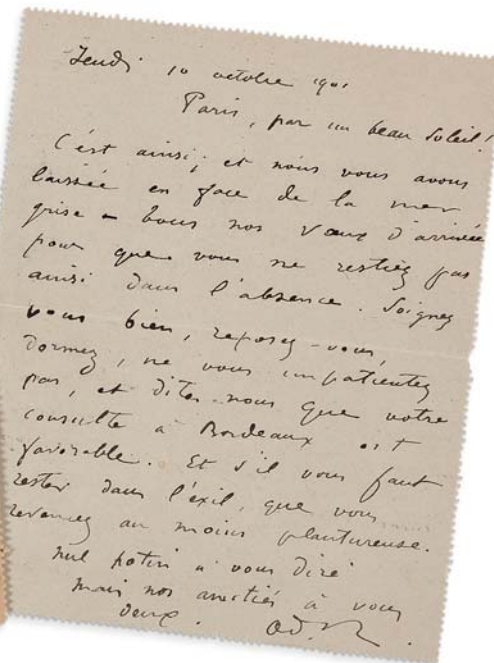 Jeudi 10 octobre 1901
Paris, par un beau soleil!
C'est ainsi; et nous vous avons
laissée en face de la mer
grise – tous nos vœux d'arrivée
pour que vous ne restiez pas
ainsi dans l'absence. Soignez
vous bien, reposez-vous,
dormez, ne vous impatientez
pas, et dites-nous que votre
consulte à Bordeaux est
favorable. Et s'il vous faut
rester dans l'exil, que vous
reveniez au moins plantureuse.
Nul potin à vous dire
mais nos amitiés à vous
deux.